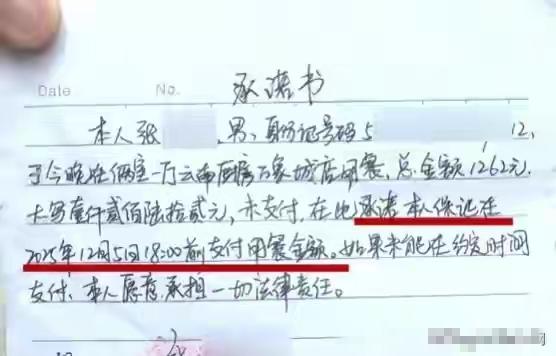 Date No. 承诺书
本人张 男、身份证号码5 12,
于今晚在 一厅云南厨房万象城店用餐、总金额1262元.
大写壹仟贰佰陆拾贰元,未支付,在此承诺本人保证在
2025年12月5日18:00前支付用餐金额。如果未能在约定时间
支付、本人愿意承担一切法律责任。
网